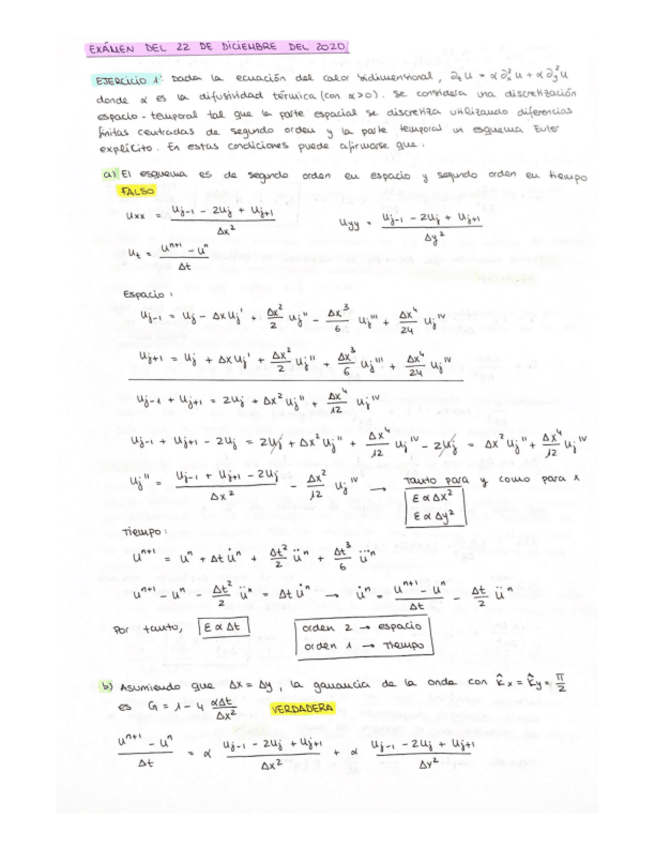 EXÁMEN DEL 22 DE DICIEMBRE DEL 2020
EJERCICIO 1: Dada la ecuación del calor bidimensional, ∂t u = α ∂x² u + α ∂y² u
donde α es la difusividad térmica (con α>0). Se considera una discretización
espacio-temporal tal que la parte espacial se discretiza utilizando diferencias
finitas centradas de segundo orden y la parte temporal un esquema Euler
explícito. En estas condiciones puede afirmarse que:
a) El esquema es de segundo orden en espacio y segundo orden en tiempo
FALSO
uxx = (uj-1 - 2uj + uj+1) / Δx² uyy = (uj-1 - 2uj + uj+1) / Δy²
ut = (uⁿ⁺¹ - uⁿ) / Δt
Espacio:
uj-1 = uj - Δx uj' + Δx²/2 uj'' - Δx³/6 uj''' + Δx⁴/24 uj^IV
uj+1 = uj + Δx uj' + Δx²/2 uj'' + Δx³/6 uj''' + Δx⁴/24 uj^IV
uj-1 + uj+1 = 2uj + Δx² uj'' + Δx⁴/12 uj^IV
uj-1 + uj+1 - 2uj = 2uj + Δx² uj'' + Δx⁴/12 uj^IV - 2uj = Δx² uj'' + Δx⁴/12 uj^IV
uj'' = (uj-1 + uj+1 - 2uj) / Δx² - Δx²/12 uj^IV → Tanto para y como para x
ε α Δx²
ε α Δy²
Tiempo:
uⁿ⁺¹ = uⁿ + Δt u̇ⁿ + Δt²/2 üⁿ + Δt³/6 u⃛ⁿ
uⁿ⁺¹ - uⁿ - Δt²/2 üⁿ = Δt u̇ⁿ → u̇ⁿ = (uⁿ⁺¹ - uⁿ) / Δt - Δt/2 üⁿ
Por tanto, ε α Δt orden 2 → espacio
orden 1 → Tiempo
b) Asumiendo que Δx = Δy, la ganancia de la onda con k̂x = k̂y = π/2
es G = 1 - 4 αΔt/Δx² VERDADERA
(uⁿ⁺¹ - uⁿ) / Δt = α (uj-1 - 2uj + uj+1) / Δx² + α (uj-1 - 2uj + uj+1) / Δy²